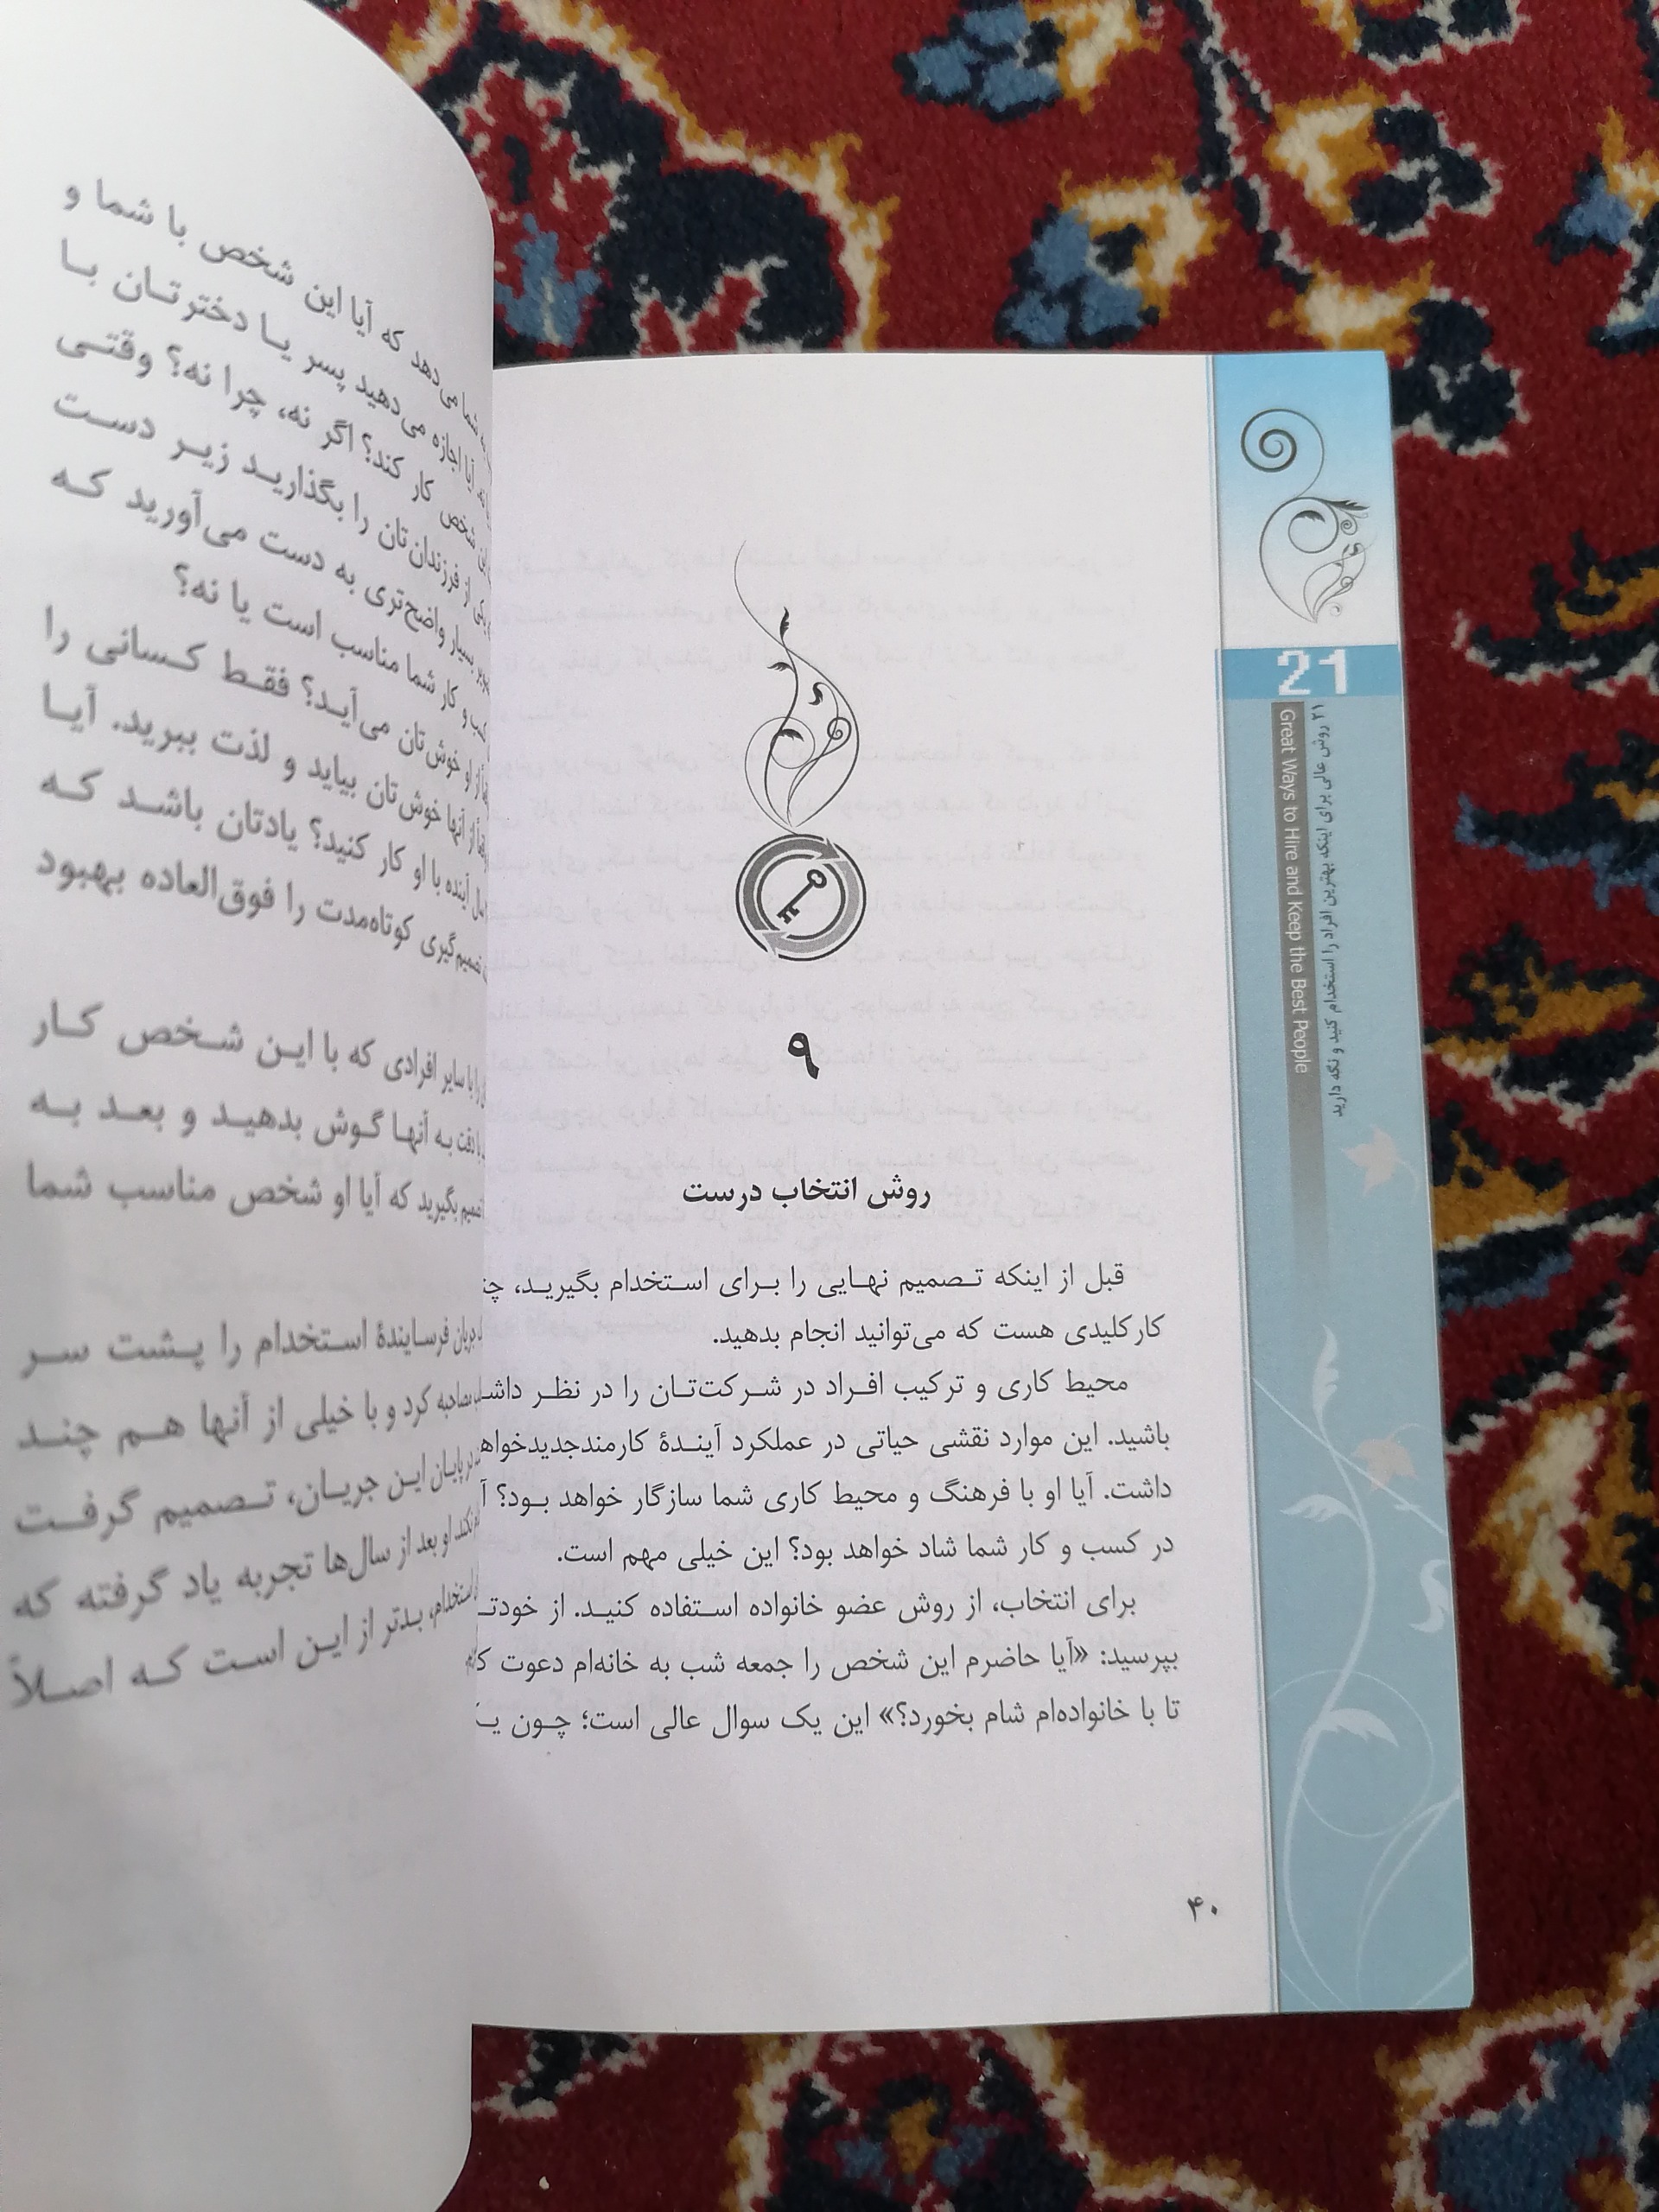 21
۲۱ روش عالی برای اینکه بهترین افراد را استخدام کنید و نگه دارید
Great Ways to Hire and Keep the Best People
۹
روش انتخاب درست
قبل از اینکه تصمیم نهایی را برای استخدام بگیرید،
کارکلیدی هست که می‌توانید انجام بدهید.
محیط کاری و ترکیب افراد در شرکت‌تان را در نظر
باشید. این موارد نقشی حیاتی در عملکرد آیندهٔ کارمندجدید
داشت. آیا او با فرهنگ و محیط کاری شما سازگار خواهد بود؟
در کسب و کار شما شاد خواهد بود؟ این خیلی مهم است.
برای انتخاب، از روش عضو خانواده استفاده کنید. از
بپرسید: «آیا حاضرم این شخص را جمعه شب به خانه‌ام دعوت
تا با خانواده‌ام شام بخورد؟» این یک سوال عالی است؛ چون
۴۰
شما می‌دهد که آیا این شخص با شما و
آیا اجازه می‌دهید پسر یا دخترتان با
شخص کار کند؟ اگر نه، چرا نه؟ وقتی
از فرزندان‌تان را بگذارید زیر دست
بسیار واضح‌تری به دست می‌آورید که
و کار شما مناسب است یا نه؟
از او خوش‌تان می‌آید؟ فقط کسانی را
از آنها خوش‌تان بیاید و لذت ببرید. آیا
آینده با او کار کنید؟ یادتان باشد که
کوتاه‌مدت را فوق‌العاده بهبود
را با سایر افرادی که با این شخص کار
با دقت به آنها گوش بدهید و بعد به
بگیرید که آیا او شخص مناسب شما
جریان فرسایندهٔ استخدام را پشت سر
مصاحبه کرد و با خیلی از آنها هم چند
در پایان این جریان، تصمیم گرفت
نکند. او بعد از سال‌ها تجربه یاد گرفته که
استخدام، بدتر از این است که اصلاً